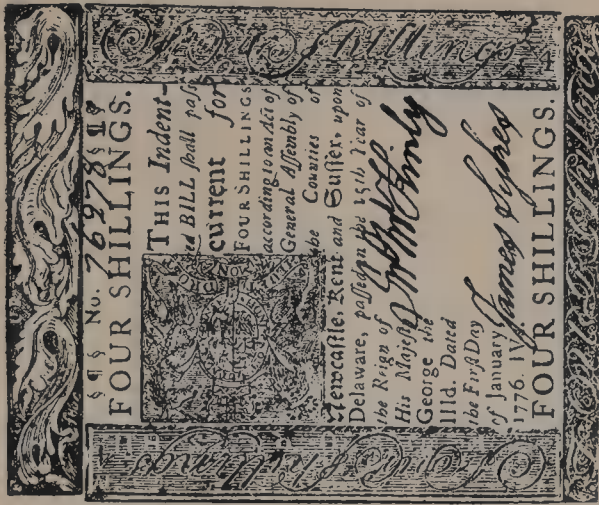 Four Shillings
No. 76978
FOUR SHILLINGS.
THIS Indent-
ed BILL ſhall paſs
current for
FOUR SHILLINGS
according to an Act of
General Aſſembly of
the Counties of
Newcaſtle, Kent and Suſſex, upon
Delaware, paſſed in the 15th Year of
the Reign of
His Majeſty
George the
IIId. Dated
the Firſt Day
of January,
1776. IV
James Sykes
FOUR SHILLINGS.